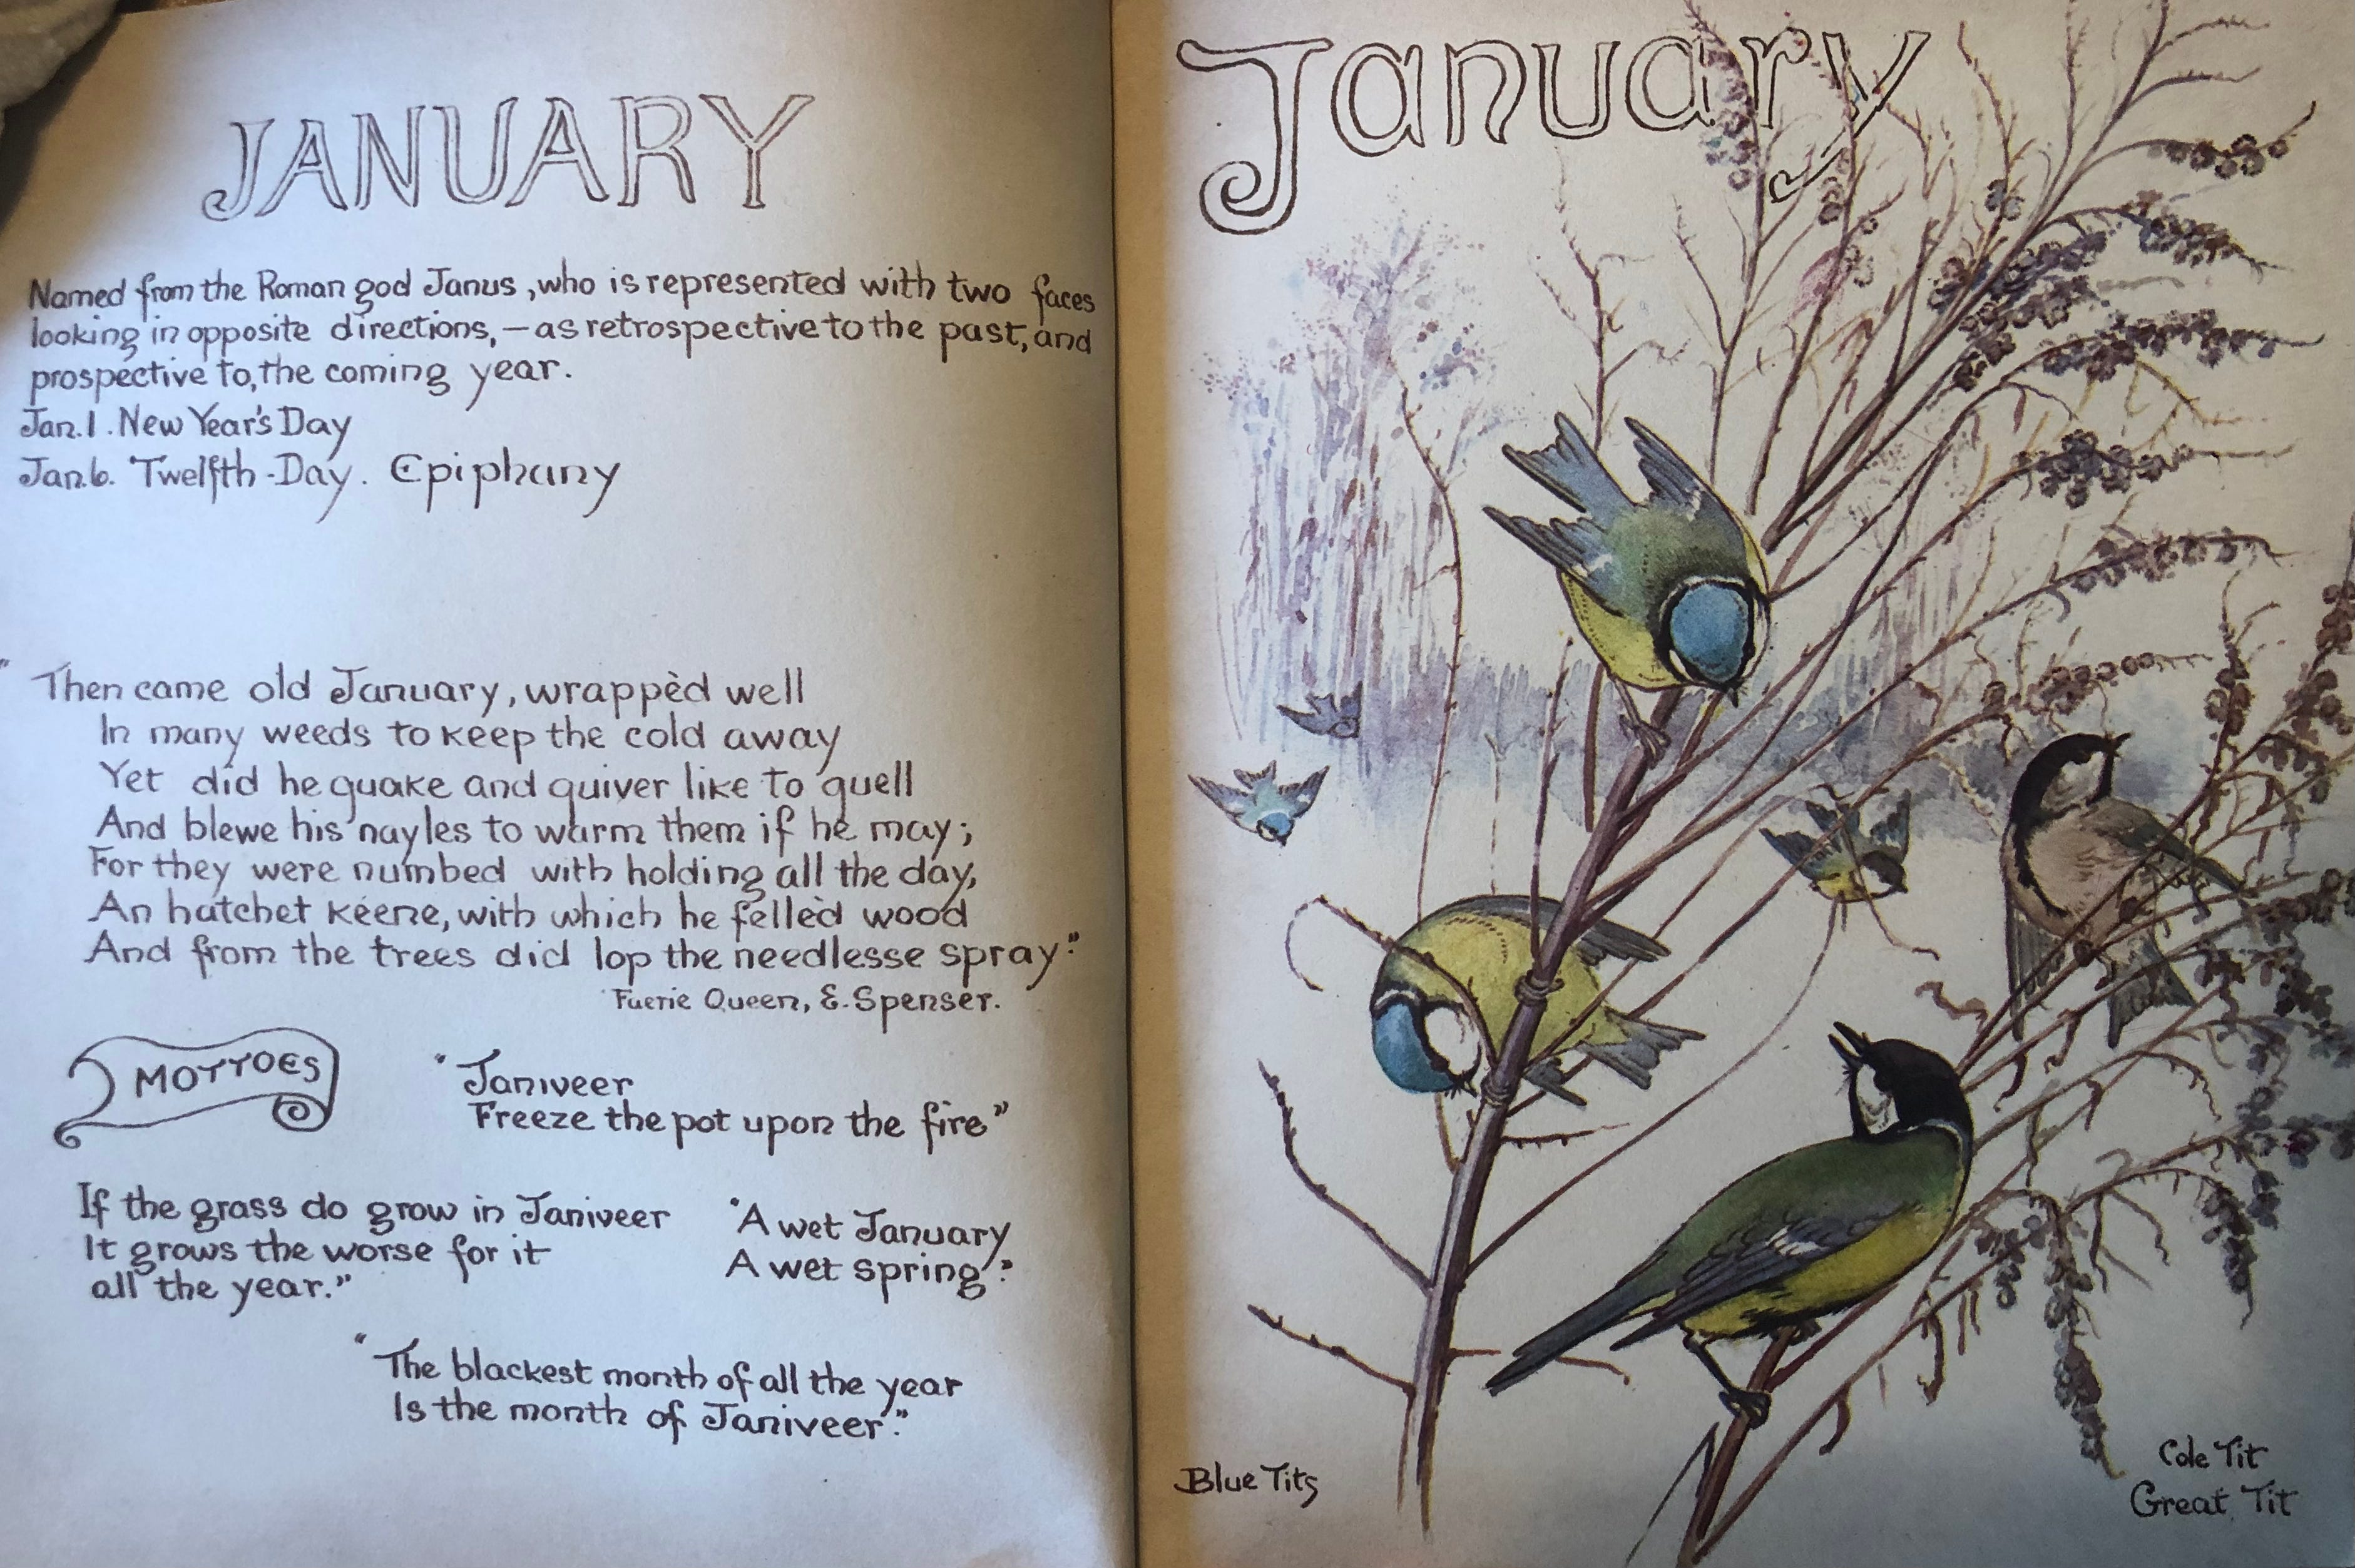 JANUARY
Named from the Roman god Janus, who is represented with two faces
looking in opposite directions, – as retrospective to the past, and
prospective to, the coming year.
Jan. 1. New Year's Day
Jan. 6. Twelfth-Day. Epiphany
"Then came old January, wrappèd well
In many weeds to keep the cold away
Yet did he quake and quiver like to quell
And blewe his nayles to warm them if he may;
For they were numbed with holding all the day,
An hatchet keene, with which he fellèd wood
And from the trees did lop the needlesse spray."
Faerie Queen, E. Spenser.
MOTTOES
"Janiveer
Freeze the pot upon the fire"
If the grass do grow in Janiveer
It grows the worse for it
all the year."
"A wet January
A wet spring".
"The blackest month of all the year
Is the month of Janiveer".
January
Blue Tits
Cole Tit
Great Tit